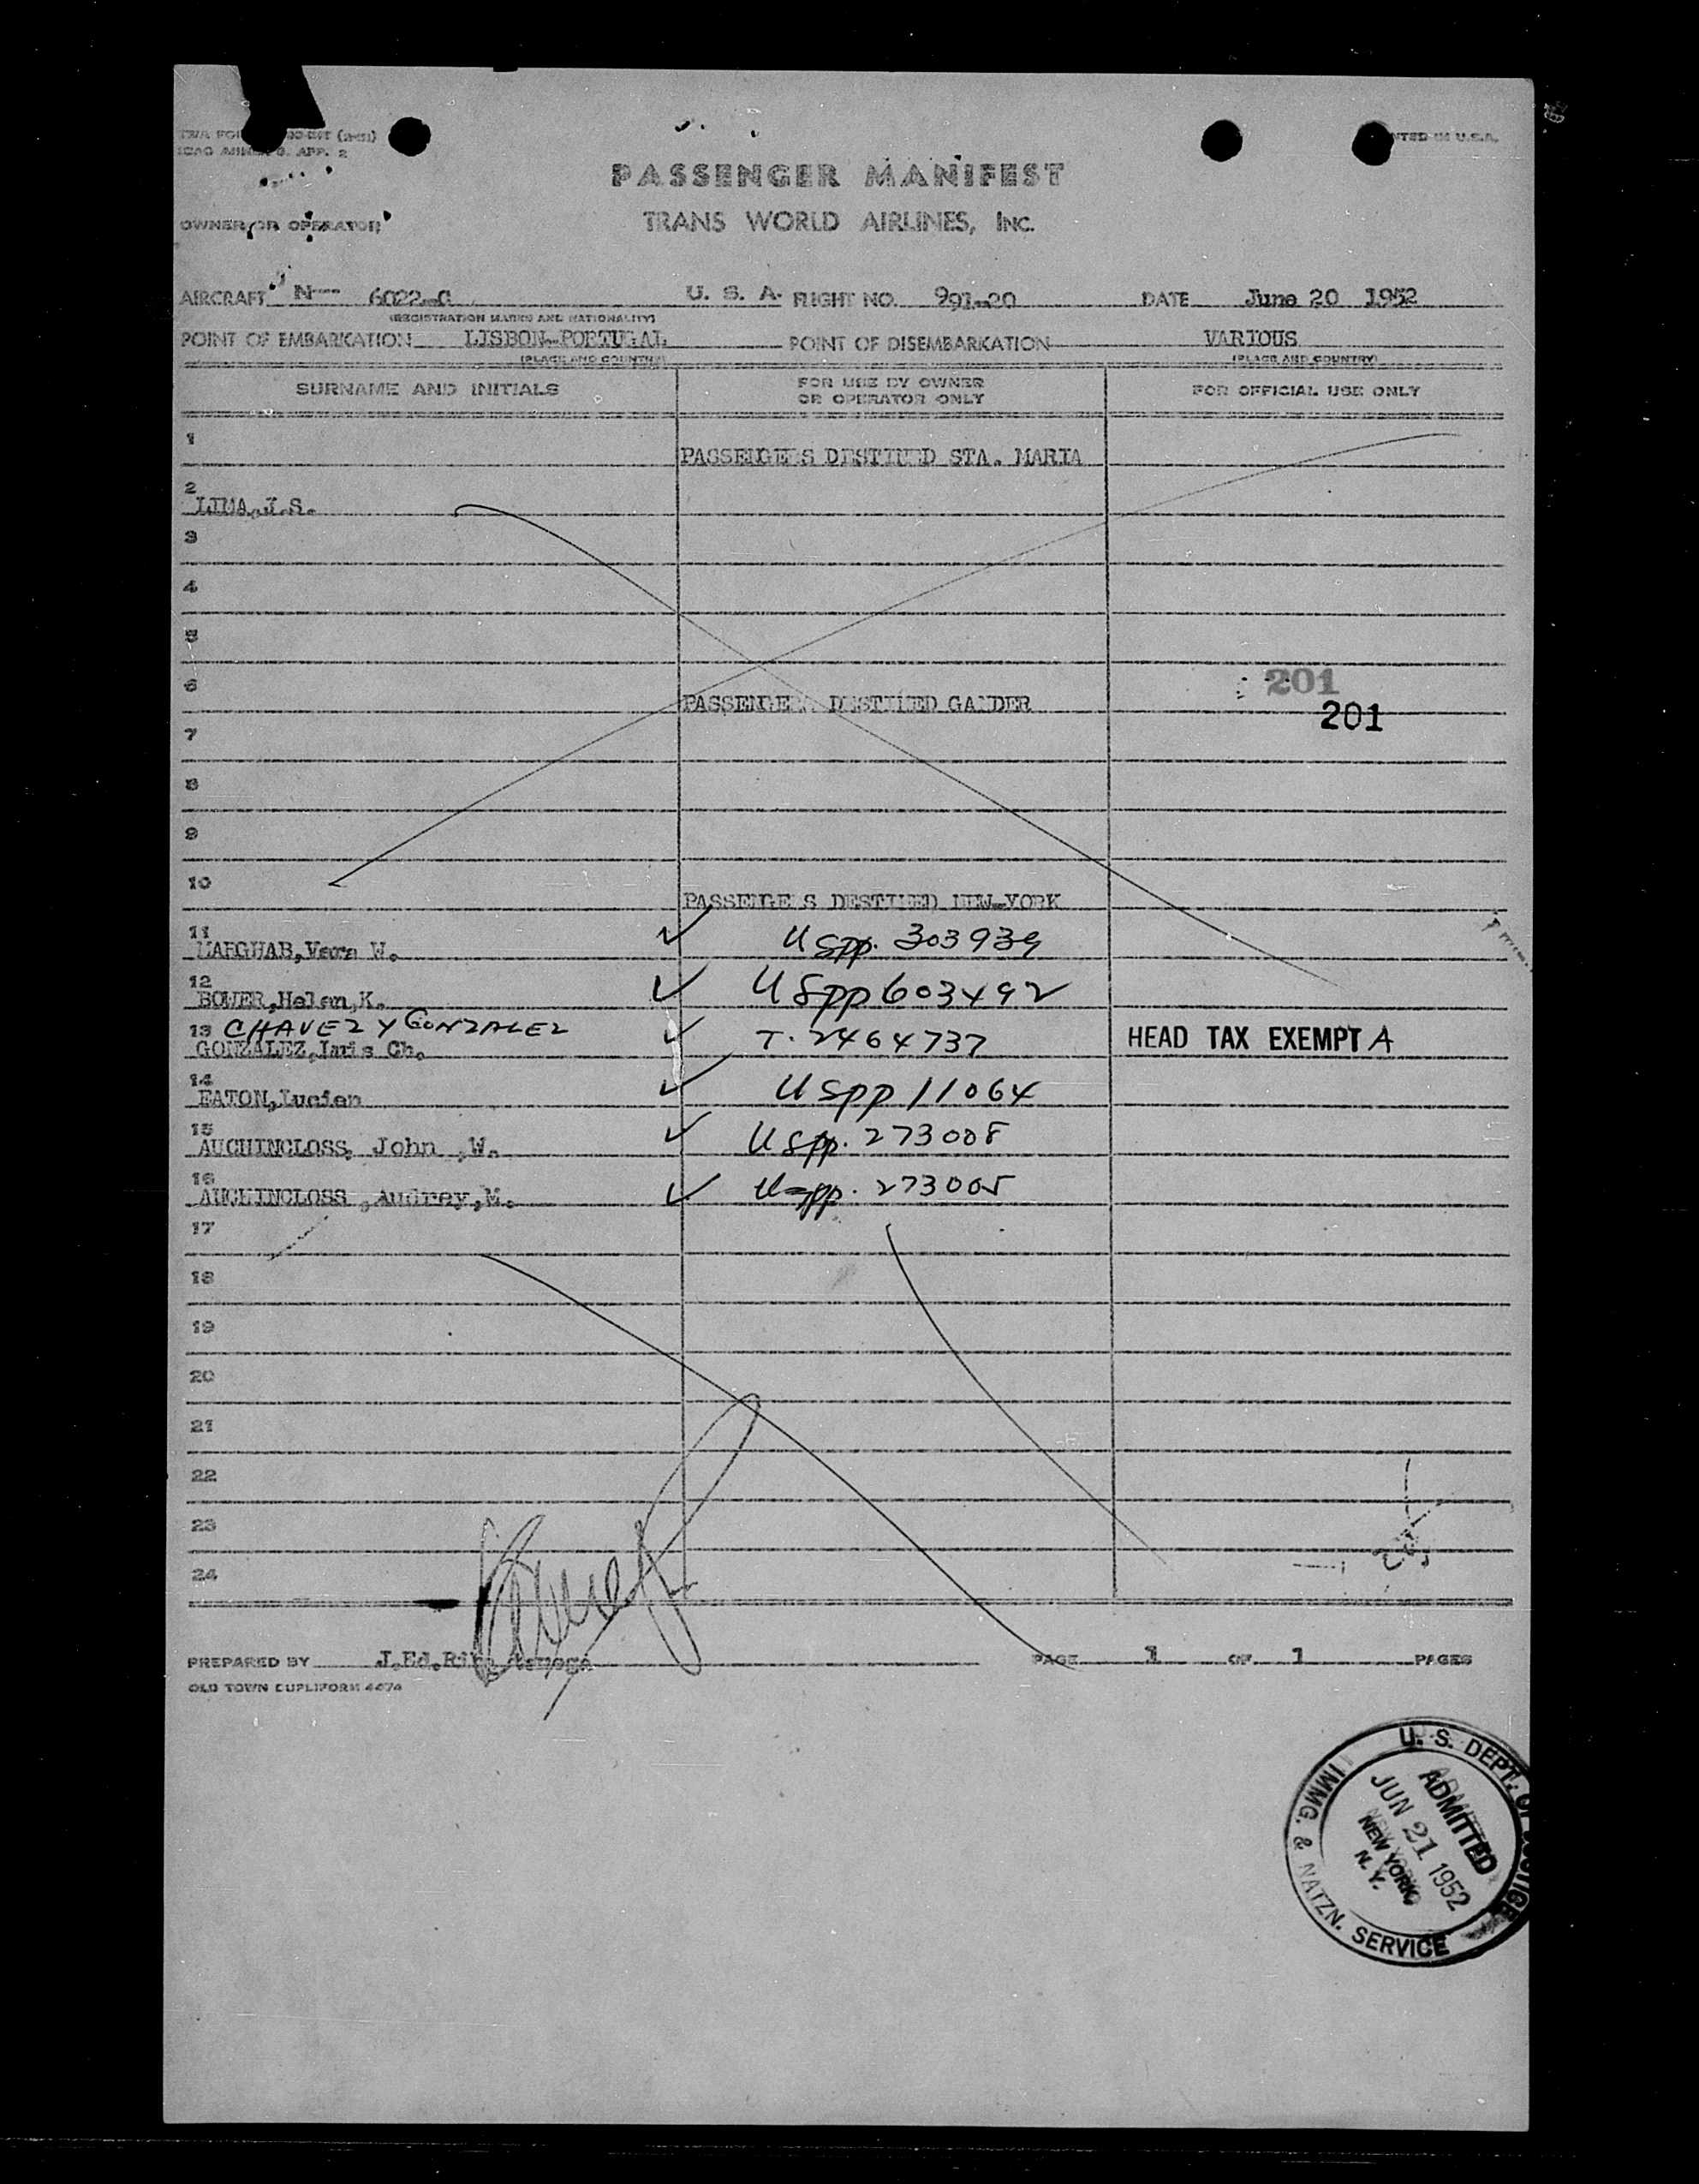 TWA FORM (2-51)
ICAO ANNEX 9, APP. 2
PRINTED IN U.S.A.
PASSENGER MANIFEST
OWNER OR OPERATOR
TRANS WORLD AIRLINES, INC.
AIRCRAFT N--- 6022-C U. S. A. FLIGHT NO. 991-20 DATE June 20 1952
(REGISTRATION MARKS AND NATIONALITY)
POINT OF EMBARKATION LISBON-PORTUGAL POINT OF DISEMBARKATION VARIOUS
(PLACE AND COUNTRY) (PLACE AND COUNTRY)
SURNAME AND INITIALS FOR USE BY OWNER OR OPERATOR ONLY FOR OFFICIAL USE ONLY
1 PASSENGERS DESTINED STA. MARIA
2 LIMA, J.S.
3
4
5
6 PASSENGERS DESTINED GANDER 201
201
7
8
9
10 PASSENGERS DESTINED NEW-YORK
11 MARGHAB, Vera W. ✓ USpp. 303939
12 BOWER, Helen, K. ✓ USpp 603492
13 CHAVEZ Y GONZALEZ
GONZALEZ, Ch. ✓ T. 2464737 HEAD TAX EXEMPT A
14 EATON, Lucien ✓ USpp 11064
15 AUCHINCLOSS, John ,W. ✓ USpp. 273008
16 AUCHINCLOSS ,Audrey,M. ✓ USpp. 273005
17
18
19
20
21
22
23
24
PREPARED BY J.Ed. PAGE 1 OF 1 PAGES
OLD TOWN DUPLIFORM 4474
U. S. DEPT. OF JUSTICE
ADMITTED
JUN 21 1952
NEW YORK,
N. Y.
IMMG. & NATZN. SERVICE